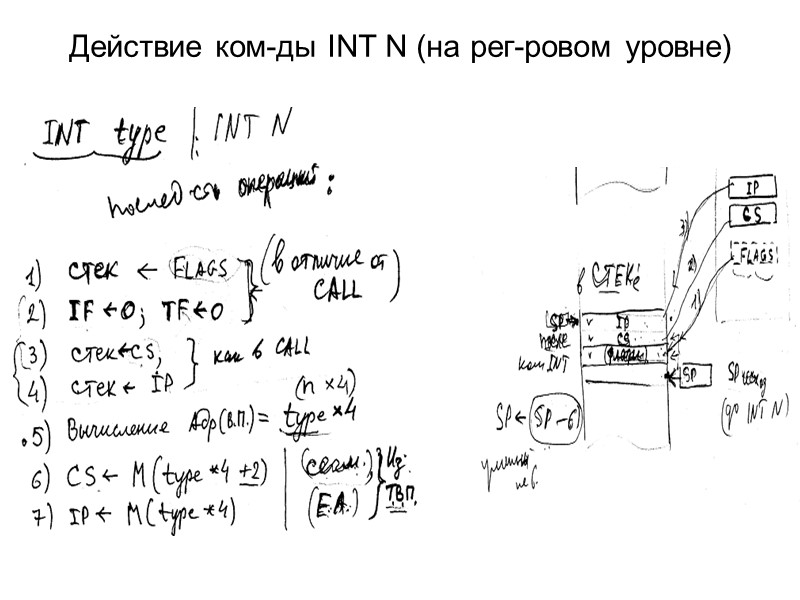 Действие ком-ды INT N (на рег-ровом уровне)
INT type | INT N
послед-сть операций:
1) стек ← FLAGS
(в отличие от
CALL)
2) IF ← 0; TF ← 0
3) стек ← CS,
как в CALL
4) стек ← IP
(n × 4)
5) Вычисление Адр(в.п.) = type * 4
6) CS ← M (type * 4 + 2)
(сегм.)
Из
ТВП.
7) IP ← M (type * 4)
(E.A.)
IP
CS
FLAGS
3)
2)
1)
в СТЕКе
SP
после
ком INT
IP
CS
флаги
SP
SP исход
(до INT N)
SP ← (SP – 6)